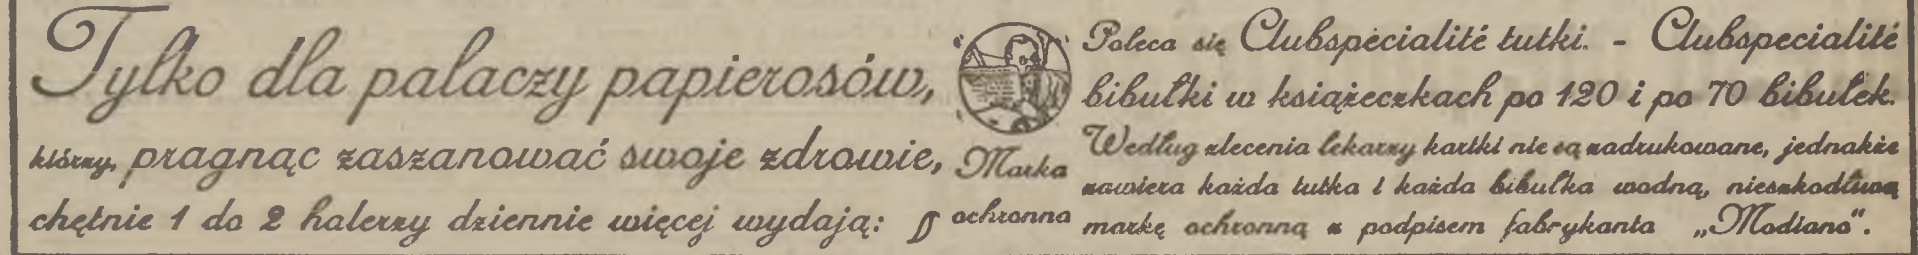 Tylko dla palaczy papierosów,
którzy, pragnąc zaszanować swoje zdrowie,
chętnie 1 do 2 halerzy dziennie więcej wydają:
Marka
ochronna
Poleca się Clubspécialité tutki. - Clubspecialité
bibułki w książeczkach po 120 i po 70 bibułek.
Według zlecenia lekarzy kartki nie są zadrukowane, jednakże
zawiera każda tutka i każda bibułka wodną, nieszkodliwą
markę ochronną z podpisem fabrykanta „Modiano".